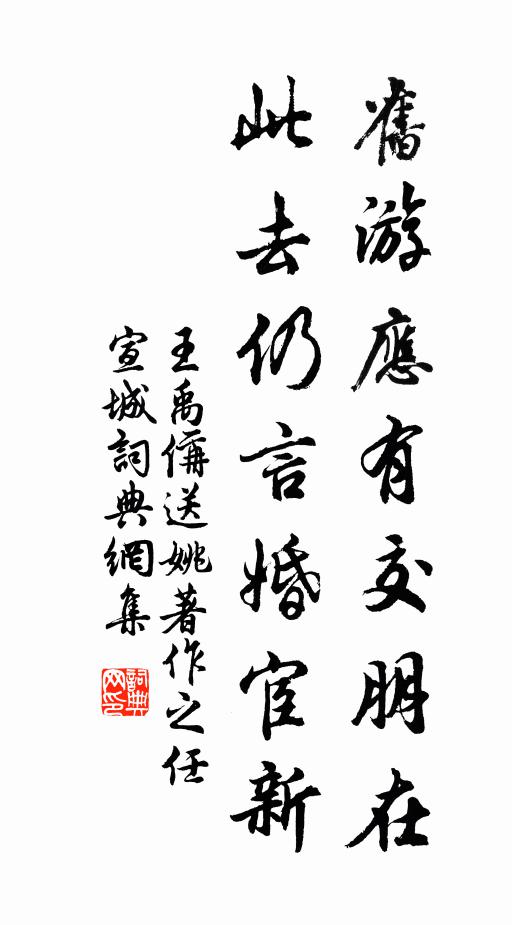 舊游應有交朋在
此去仍言婚宦新
王禹偁送姚著作之任
宣城詞典網集
詞典
网印